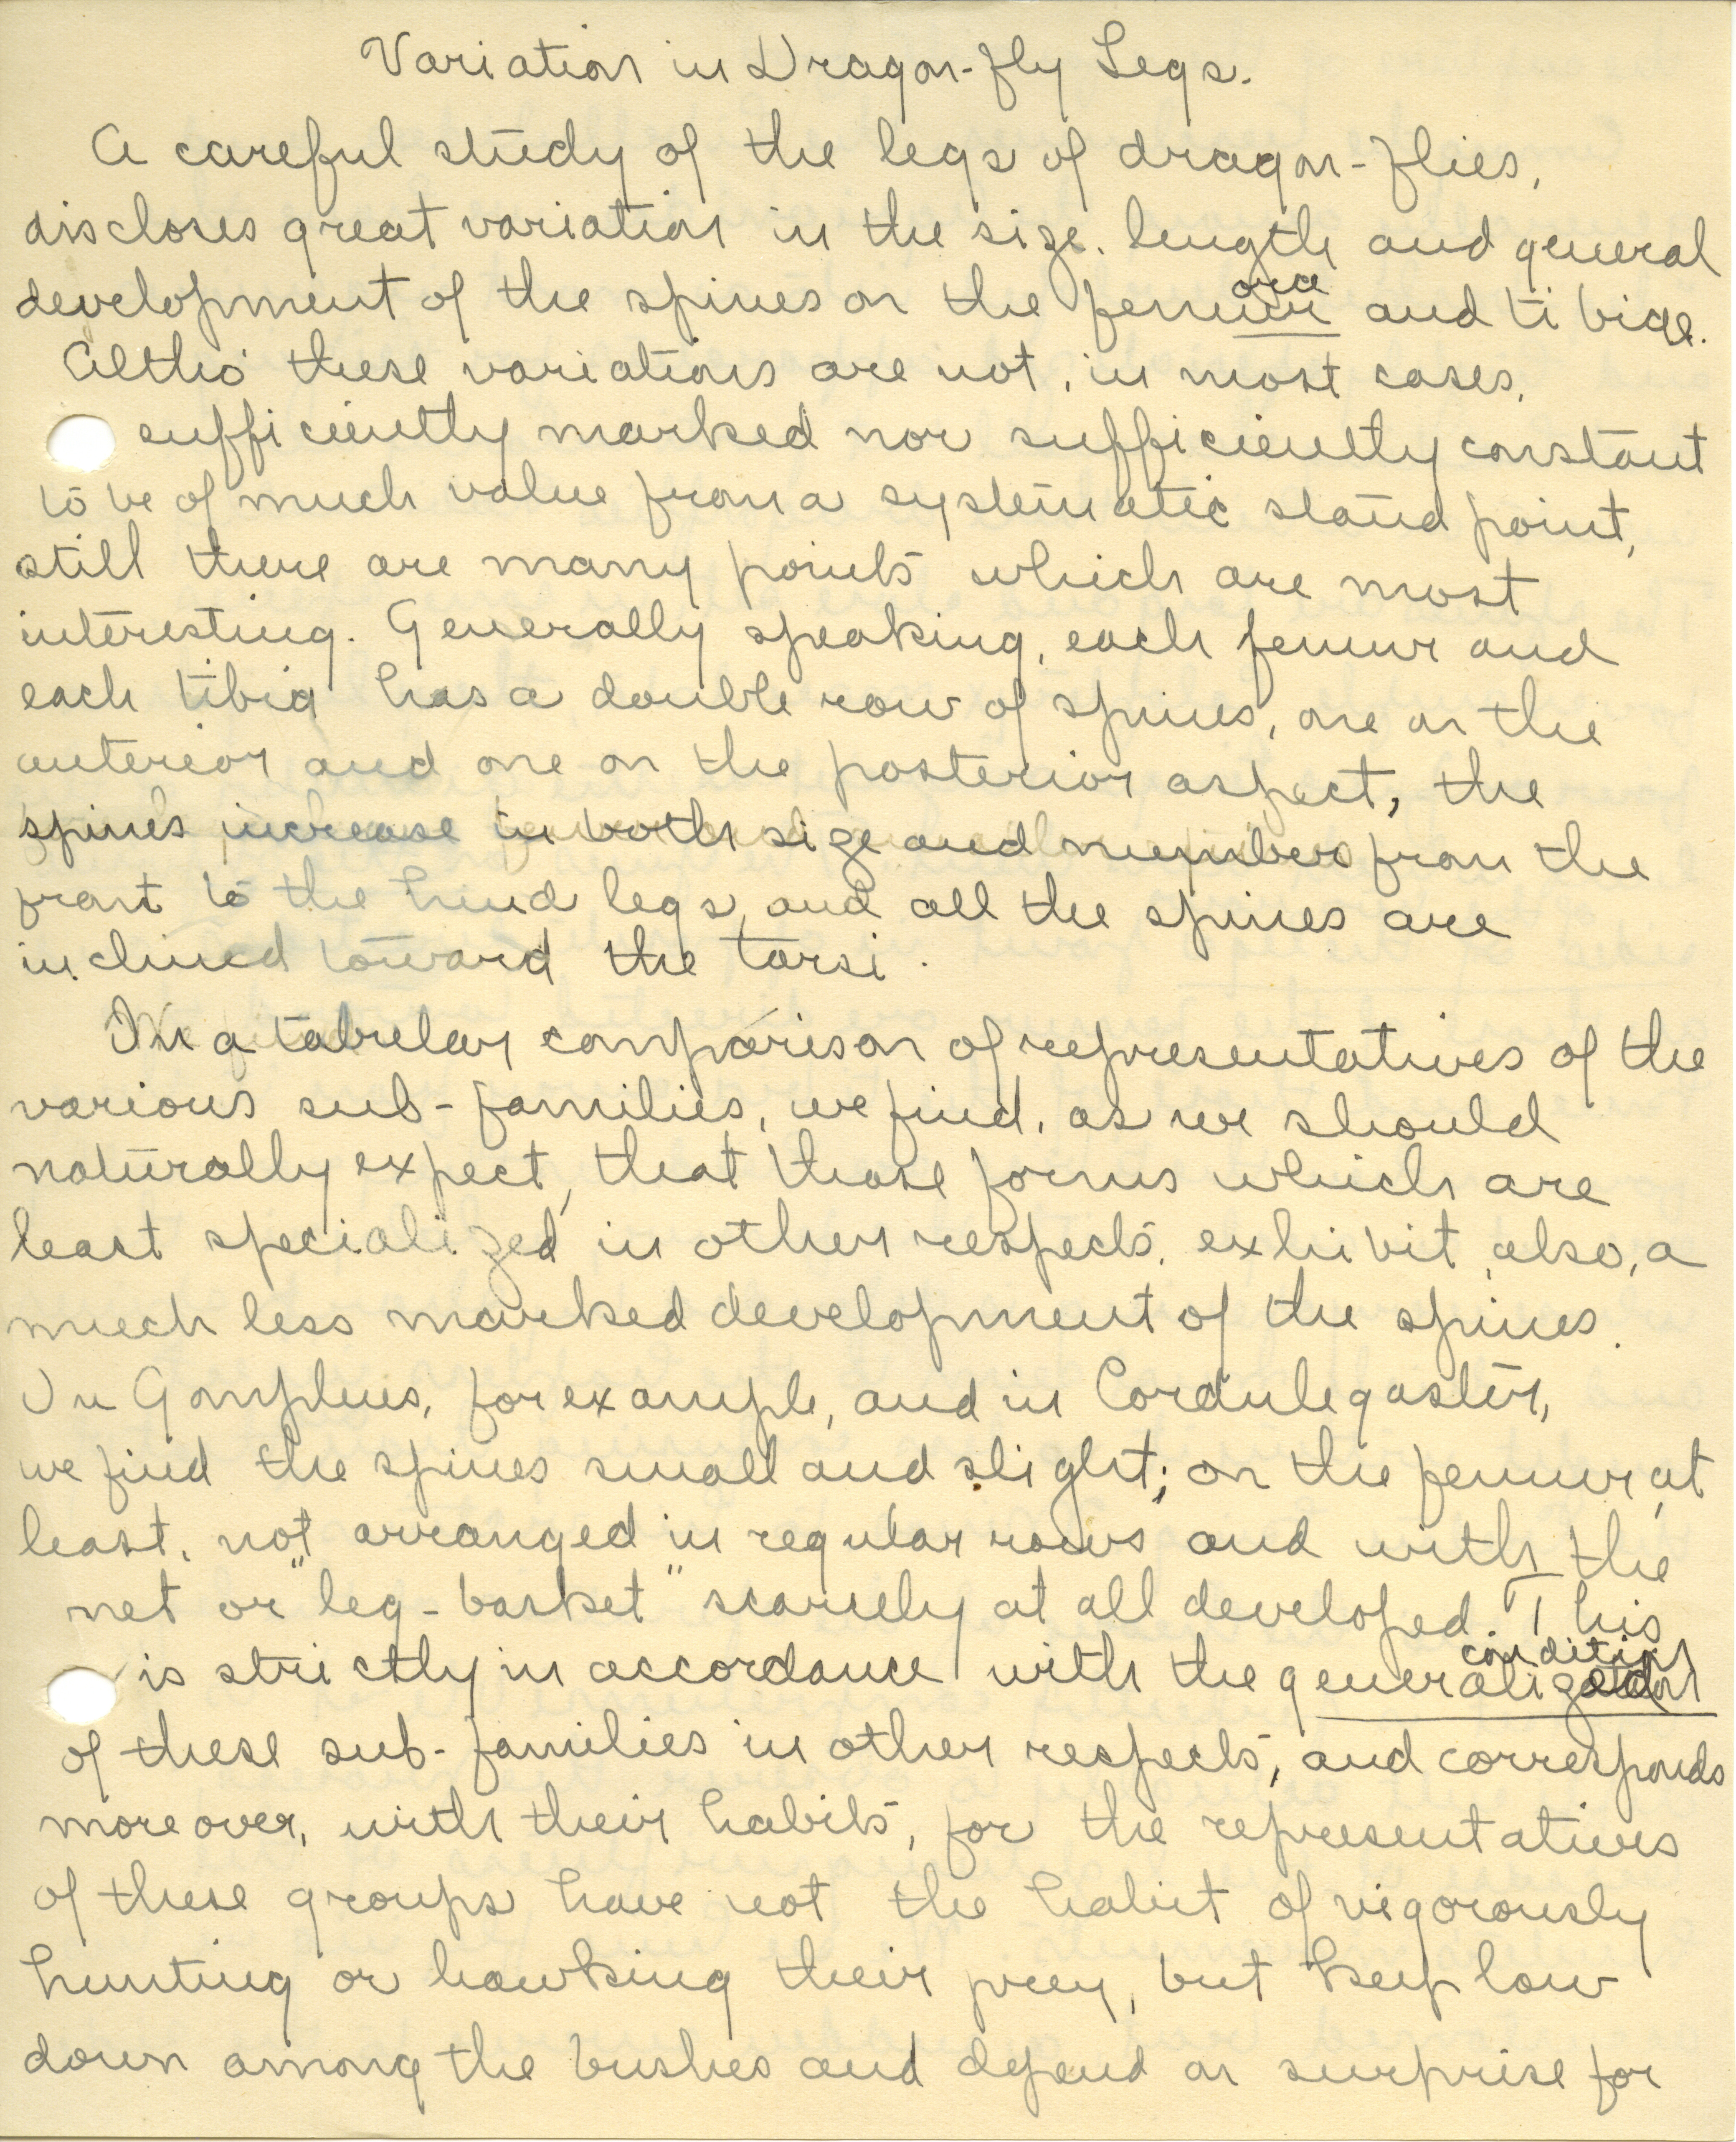 Variation in Dragon-fly Legs.
A careful study of the legs of dragon-flies,
discloses great variation in the size, length and general
development of the spines on the femora and tibiae.
Altho' these variations are not, in most cases,
sufficiently marked nor sufficiently constant
to be of much value from a systematic stand point,
still there are many points which are most
interesting. Generally speaking, each femur and
each tibia has a double row of spines, one on the
anterior and one on the posterior aspect, the
spines increase in both size and numbers from the
front to the hind legs, and all the spines are
inclined toward the tarsi.
In a tabular comparison of representatives of the
various sub-families, we find, as we should
naturally expect, that those forms which are
least specialized in other respects, exhibit, also, a
much less marked development of the spines.
In Gomphus, for example, and in Cordulegaster,
we find the spines small and slight; on the femur, at
least, not arranged in regular rows and with the
net or "leg-basket" scarcely at all developed. This
is strictly in accordance with the generalized condition
of these sub-families in other respects, and corresponds
moreover, with their habits, for the representatives
of these groups have not the habit of vigorously
hunting or hawking their prey, but keep low
down among the bushes and depend on surprise for